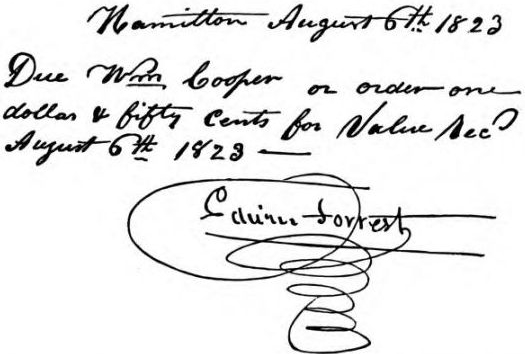 Hamilton August 6th 1823
Due Wm Cooper or order one
dollar & fifty Cents for Value Recd
August 6th 1823 —
Edwin Forrest